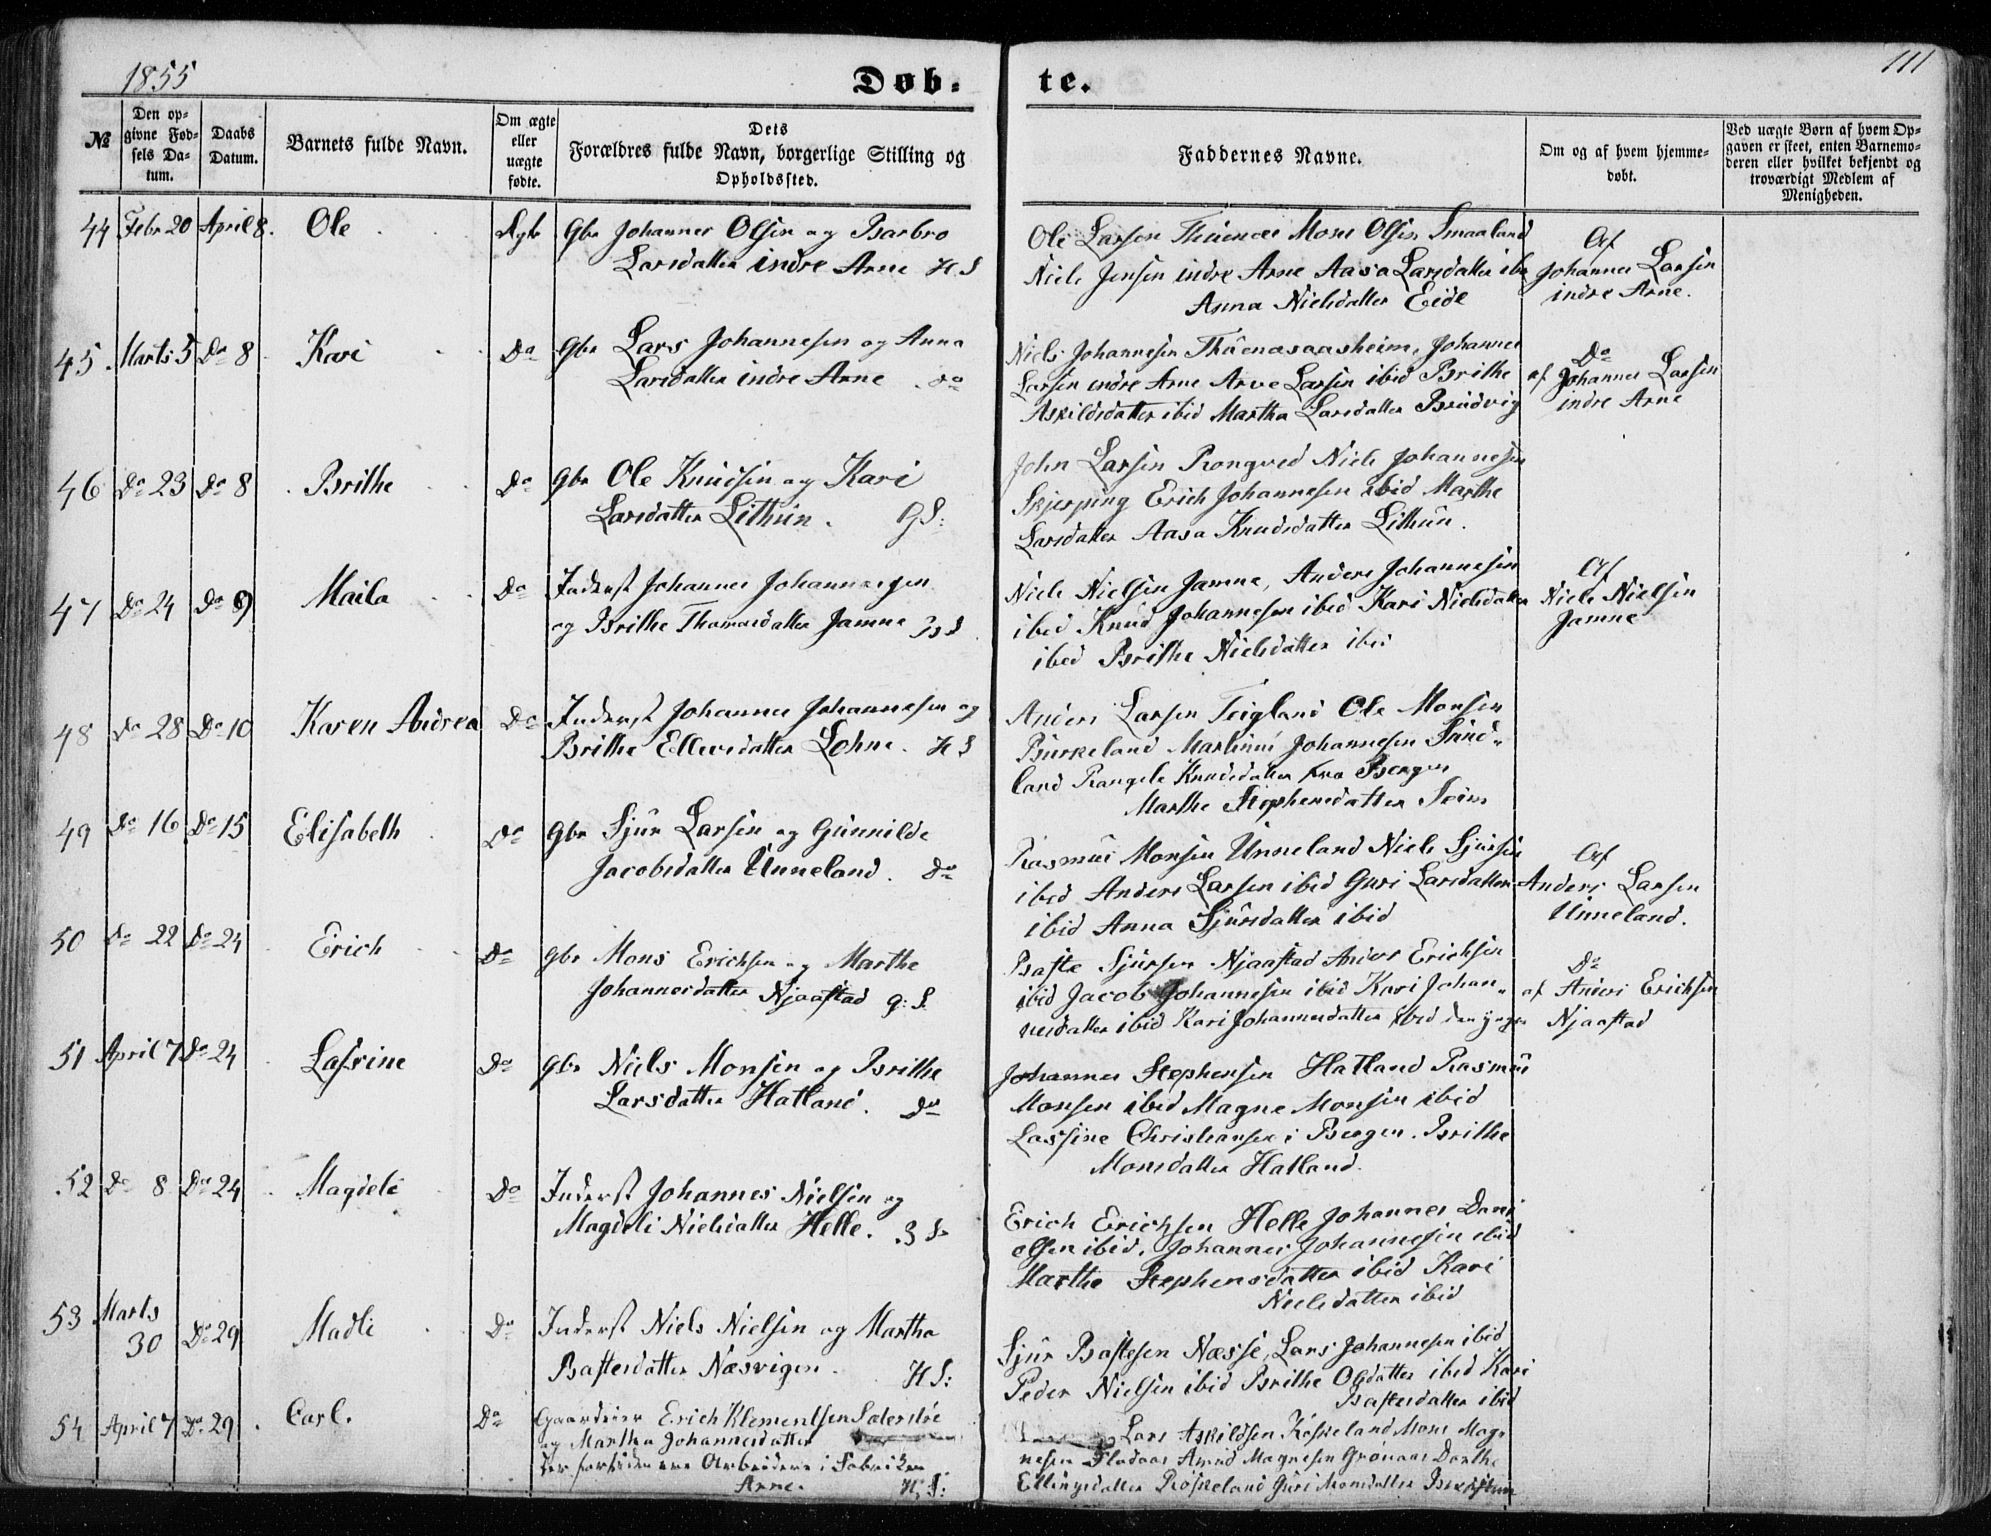 1855
Døb-
te.
111
№
Den op-
givne Fød-
sels Da-
tum.
Daabs
Datum.
Barnets fulde Navn.
Om ægte
eller
uægte
fødte.
Dets
Forældres fulde Navn, borgerlige Stilling og
Opholdssted.
Faddernes Navne.
Om og af hvem hjemme-
døbt.
Ved uægte Børn af hvem Op-
gaven er skeet, enten Barnemo-
deren eller hvilket bekjendt og
troværdigt Medlem af
Menigheden.
44 Febr 20 April 8. Ole Ægte Gbr Johannes Olsen og Barbro
Larsdatter indre Arne H S
Ole Larsen Mons Olsen Smaaland
Niels Jensen indre Arne Aasa Larsdatter ibd
Anna Nielsdatter Eide
Af
Johannes Larsen
indre Arne.
45. Marts 5 Do 8 Kari Do Gbr Lars Johannesen og Anna
Larsdatter indre Arne Do
Niels Johannesen Johannes
Larsen indre Arne Arve Larsen ibid Brithe
Askildsdatter ibid Martha Larsdatter Brudvig
Do
af Johannes Larsen
indre Arne
46 Do 23 Do 8 Brithe Do Gbr Ole Knudsen og Kari
Larsdatter Lithun. G S:
John Larsen Rongved Niels Johannesen
Skjerping Erich Johannesen ibid Marthe
Larsdatter Aasa Knudsdatter Lithun.
47 Do 24 Do 9 Maila Do Inderst Johannes Johannesen
og Brithe Thomasdatter Jamne
Niels Nielsen Jamne, Anders Johannesen
ibid Knud Johannesen ibid Kari Nielsdatter
ibid Brithe Nielsdatter ibid
Af
Niels Nielsen
Jamne
48 Do 28 Do 10 Karen Andrea Do Inderst Johannes Johannesen og
Brithe Ellevsdatter Lohne. H S
Anders Larsen Teigland Ole Monsen
Burkeland Martinus Johannesen Sund-
land Rangele Knudsdatter fra Bergen
Marthe Stephensdatter Seim
49 Do 16 Do 15 Elisabeth Do Gbr Sjur Larsen og Gunnilde
Jacobsdatter Unneland. Do
Rasmus Monsen Unneland Niels Sjursen
ibid Anders Larsen ibid Guri Larsdatter
ibid Anna Sjursdatter ibid
Af
Anders Larsen
Unneland.
50 Do 22 Do 24 Erich Do Gbr Mons Erichsen og Marthe
Johannesdatter Njaastad G: S.
Baste Sjursen Njaastad Anders Erichsen
ibid Jacob Johannesen ibid Kari Johan-
nesdatter ibid Kari Johannesdatter ibid den yngre
Do
af Anders Erichsen
Njaastad
51 April 7 Do 24 Lassine Do Gbr Niels Monsen og Brithe
Larsdatter Hatland. Do
Johannes Stephensen Hatland Rasmus
Monsen ibid Magne Monsen ibid
Lassine Christiansen i Bergen. Brithe
Monsdatter Hatland.
52 Do 8 Do 24 Magdeli Do Inderst Johannes Nielsen og
Magdeli Nielsdatter Helle.
Erich Erichsen Helle Johannes Dani
elsen ibid, Johannes Johannesen ibid
Marthe Stephensdatter ibid Kari
Nielsdatter ibid
53 Marts
30 Do 29 Madli Do Inderst Niels Nielsen og Martha
Bastesdatter Næsvigen. H S:
Sjur Bastesen Næsse, Lars Johannesen ibid
Peder Nielsen ibid Brithe Olsdatter ibid Kari
Bastesdatter ibid
54 April 7 Do 29 Carl. Do Gaardeier Erich Klementsen
og Martha Johannesdatter
Arbeidere i Fabriken
Arne. H. S:
Lars Askildsen Mons Mag-
nesen Fladaas Magnesen Dorthe
Ellingsdatter Guri Monsdatter